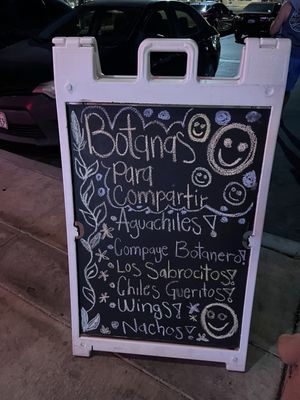 Botanas
Para
Compartir
Aguachiles!
Compaye Botanero!
Los Sabrocitos!
Chiles Gueritos!
Wings!
Nachos!